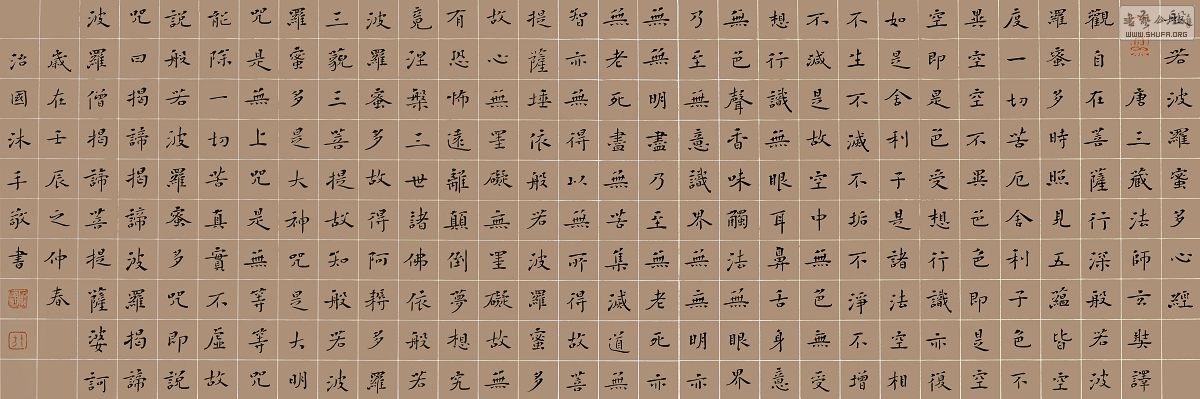 般若波羅蜜多心經
唐三藏法師玄奘譯
觀自在菩薩行深般若波
羅蜜多時照見五蘊皆空
度一切苦厄舍利子色不
異空空不異色色即是空
空即是色受想行識亦復
如是舍利子是諸法空相
不生不滅不垢不淨不增
不減是故空中無色無受
想行識無眼耳鼻舌身意
無色聲香味觸法無眼界
乃至無意識界無無明亦
無無明盡乃至無老死亦
無老死盡無苦集滅道無
智亦無得以無所得故菩
提薩埵依般若波羅蜜多
故心無罣礙無罣礙故無
有恐怖遠離顛倒夢想究
竟涅槃三世諸佛依般若
波羅蜜多故得阿耨多羅
三藐三菩提故知般若波
羅蜜多是大神咒是大明
咒是無上咒是無等等咒
能除一切苦真實不虛故
說般若波羅蜜多咒即說
咒曰揭諦揭諦波羅揭諦
波羅僧揭諦菩提薩婆訶
歲在壬辰之仲春
治國沐手敬書
WWW.SHUFA.ORG